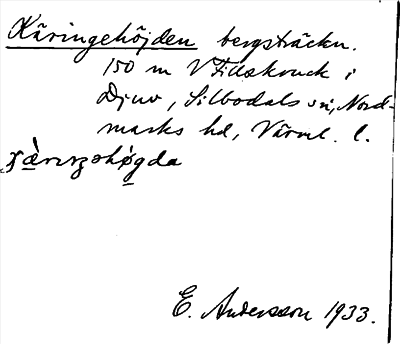 Käringehöjden bergsträckn.
150 m V Fillskruck i
Djuv, Silbodals sn, Nord-
marks hd, Värml. l.
E. Andersson 1933.